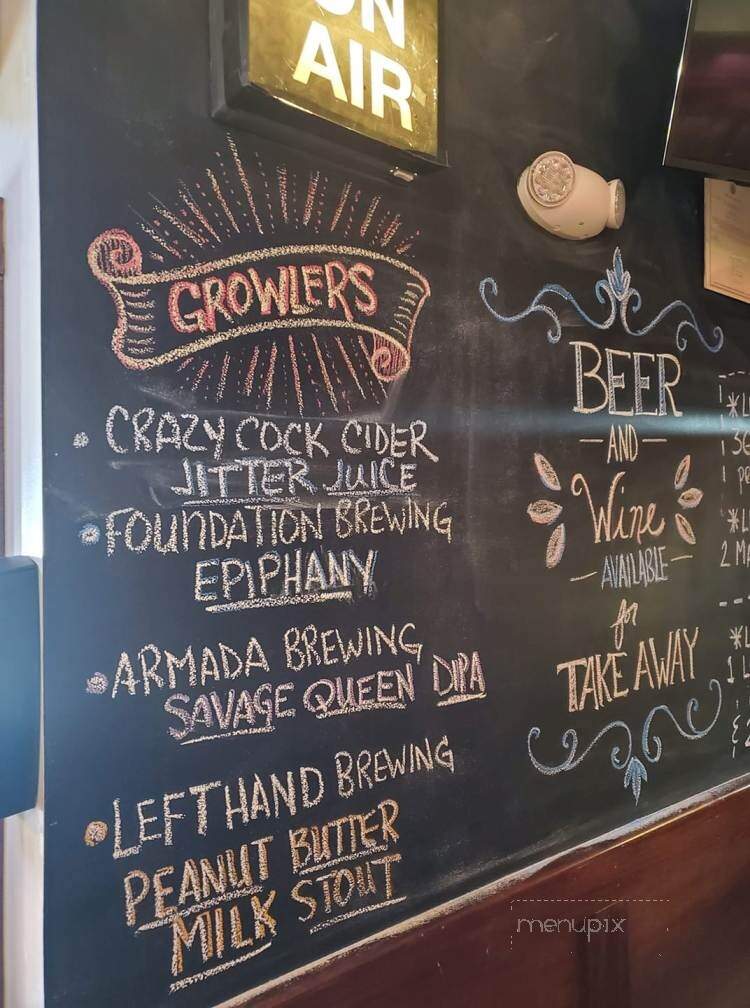 ON
AIR
GROWLERS
CRAZY COCK CIDER
JITTER JUICE
FOUNDATION BREWING
EPIPHANY
ARMADA BREWING
SAVAGE QUEEN DIPA
LEFT HAND BREWING
PEANUT BUTTER
MILK STOUT
BEER
AND
Wine
AVAILABLE
for
TAKE AWAY
menupix